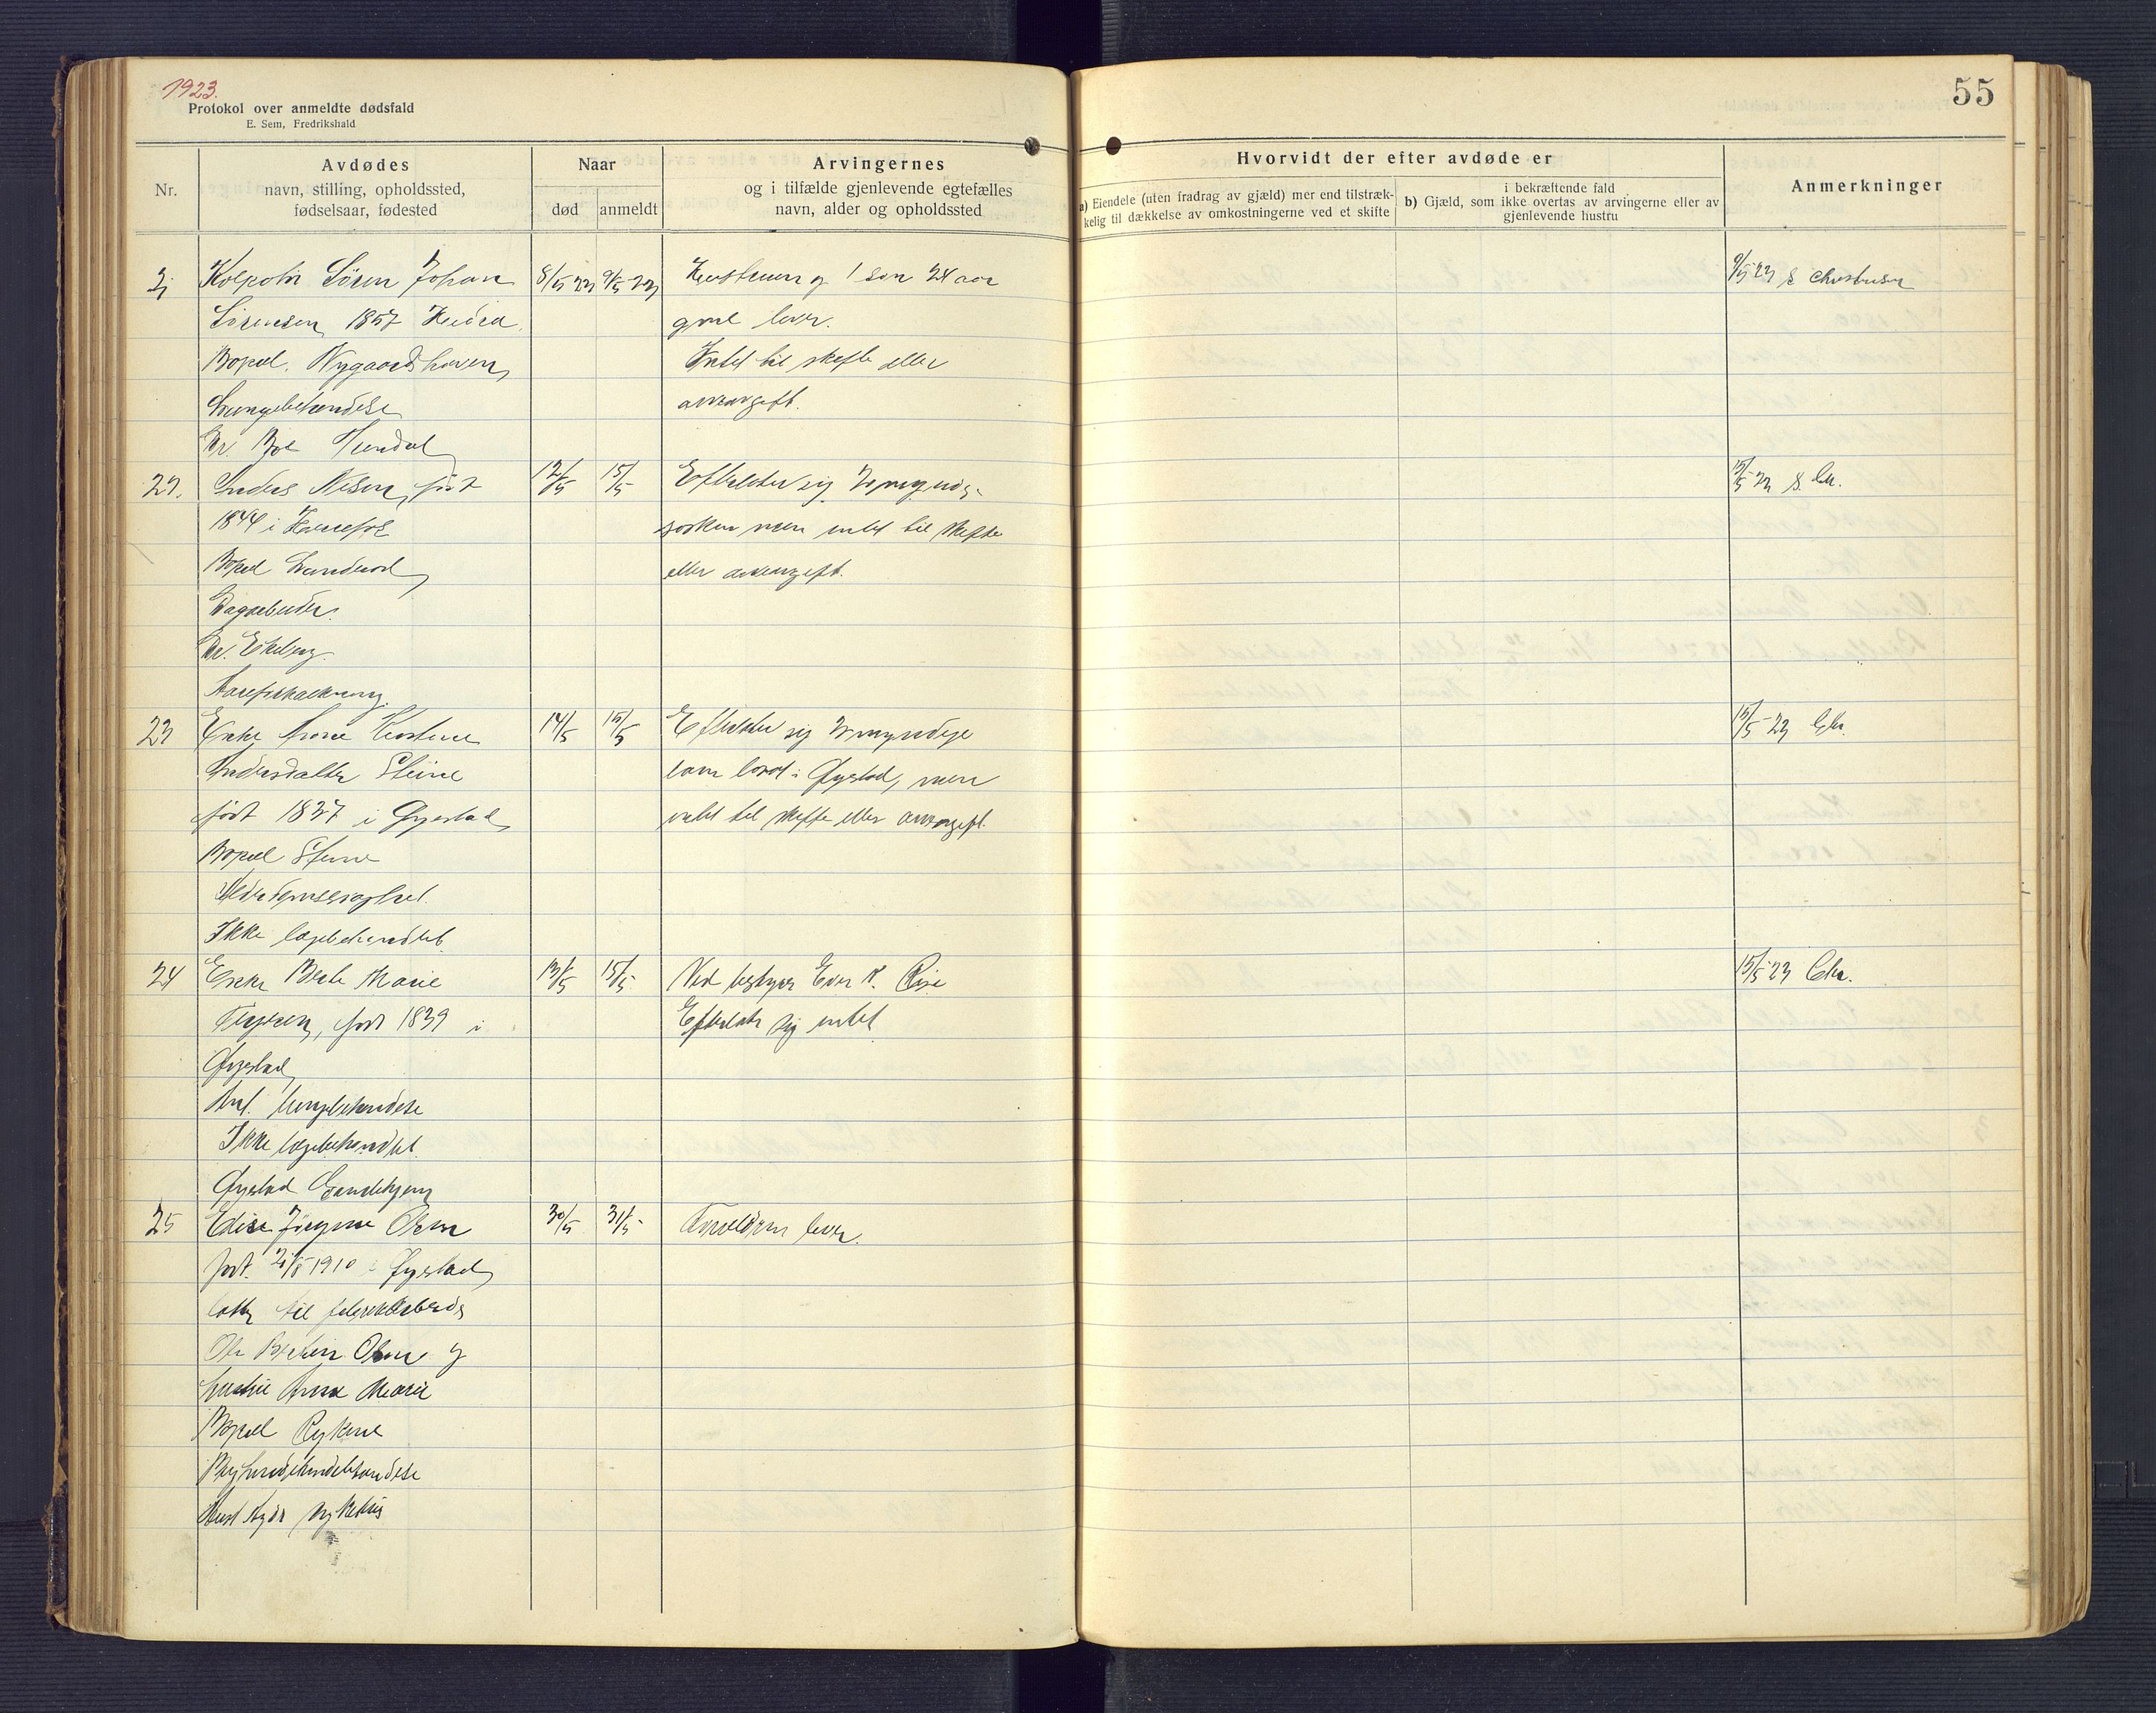 1923.
55
Protokol over anmeldte dødsfald
E. Sem, Fredrikshald
Nr.
Avdødes
navn, stilling, opholdssted,
fødselsaar, fødested
Naar
død
anmeldt
Arvingernes
og i tilfælde gjenlevende egtefælles
navn, alder og opholdssted
Hvorvidt der efter avdøde er
a) Eiendele (uten fradrag av gjæld) mer end tilstræk-
kelig til dækkelse av omkostningerne ved et skifte
i bekræftende fald
b) Gjæld, som ikke overtas av arvingerne eller av
gjenlevende hustru
Anmerkninger
Søren Johan
8/5 23 9/5-23
1 søn 24 aar
9/5 23 S Christensen
Sørensen 1857
gml lever.
Bopæl. Nygaardshaven
Intet til skifte eller
Lungebetændelse
arveavgift.
Dr. Boe Grimdal
22. Anders Nilsen, født
12/5 15/5
Efterlater sig 3 myndige
15/5 23 S. Chr.
1844 i
søsken men intet til skifte
Bopæl
eller arveavgift.
Dr. Ekeberg
Aareforkalkning
23 Enke Anne Kirstine
14/5 15/5
Efterlater sig 3 myndige
15/5-23 Chr.
Andersdatter Steine
barn boset i Øyestad, men
født 1837 i Øyestad
intet til skifte eller arveavgift.
Bopæl Steine
Alderdomssvaghet
Ikke lægebehandlet
24 Enke Berte Marie
13/5 15/5
Ved bestyrer
15/5 23 Chr.
født 1839 i
Efterlater sig intet
Øyestad
Ant. lungebetændelse
Ikke lægebehandlet
Øyestad Gamlehjem
25 Edise Jørgine Olsen
30/5 31/5
Forældrene lever.
født. 1910 i Øyestad
datter til fabrikkarbeider
Ole Olsen og
hustru Anna Marie
Bopæl Rykene
Aust Agder sykehus